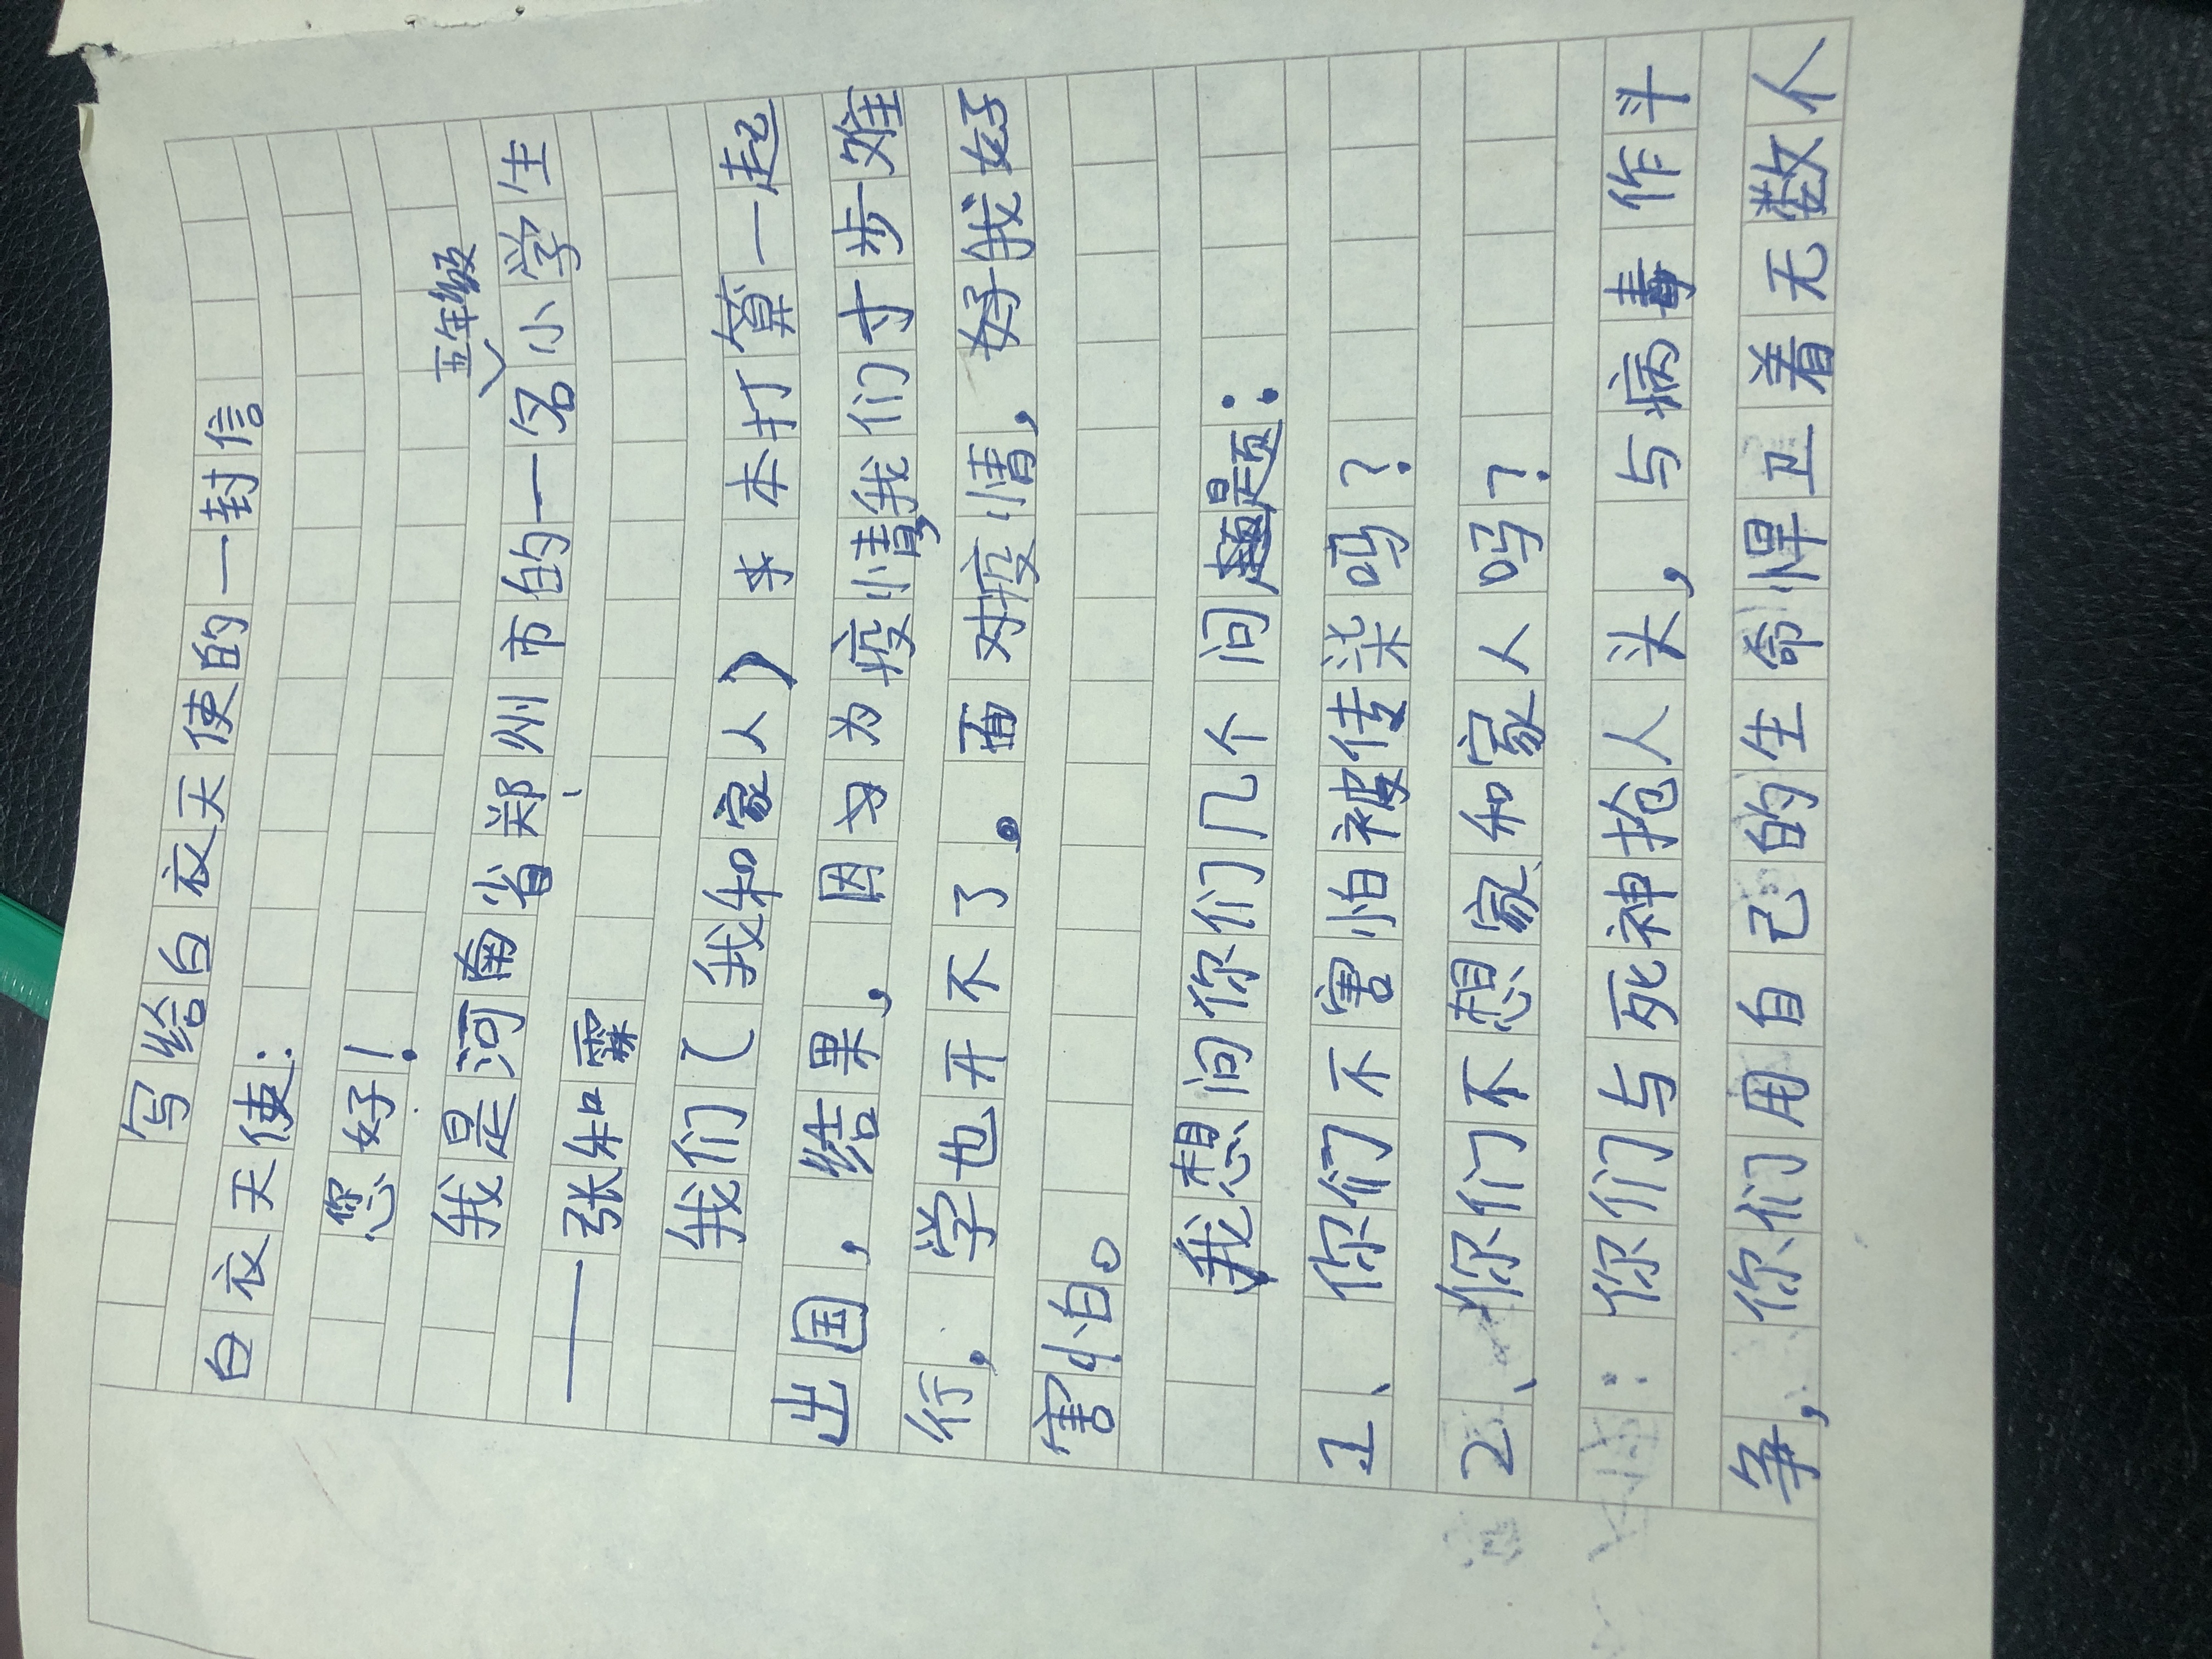 写给白衣天使的一封信
白衣天使：
您好！
五年级
我是河南省郑州市的一名小学生
——张和霖
我们（我和家人）本打算一起
出国，结果，因为疫情我们寸步难
行，学也开不了。面对疫情，好我好
害怕。
我想问你们几个问题：
1、你们不害怕被传染吗？
2、你们不想家和家人吗？
：你们与死神抢人头，与病毒作斗
争，你们用自己的生命悍卫着无数人